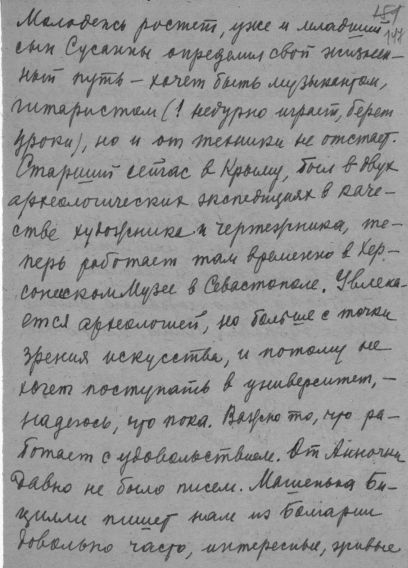 151
147
Молодежь ростет, уже и младший
сын Сусанны определил свой жизнен-
ный путь – хочет быть музыкантом,
гитаристом (! недурно играет, берет
уроки), но и от техники не отстает.
Старший сейчас в Крыму, был в двух
археологических экспедициях в каче-
стве художника и чертежника, те-
перь работает там временно в Хер-
сонесском Музее в Севастополе. Увлека-
ется археологией, но больше с точки
зрения искусства, и потому не
хочет поступать в университет, –
надеюсь, что пока. Важно то, что ра-
ботает с удовольствием. От Анночки
давно не было писем. Машенька Би-
цилли пишет нам из Болгарии
довольно часто, интересные, живые